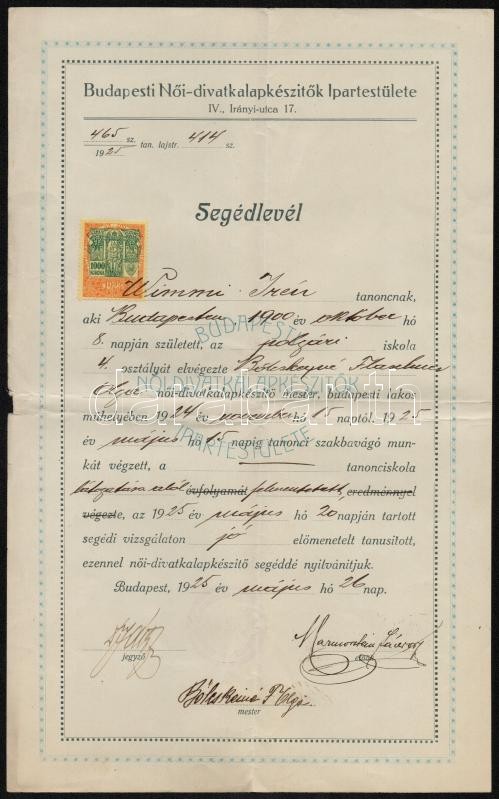 Budapesti Női-divatkalapkészitők Ipartestülete
IV., Irányi-utca 17.
465 sz.
1925 tan. lajstr. 414 sz.
Segédlevél
1000
KORONA
Wimmi Irén tanoncnak,
aki Budapesten 1900 év október hó
8. napján született, az polgári iskola
4. osztályát elvégezte Bölcskeyné
Olga női-divatkalapkészitő mester, budapesti lakos
műhelyében 1924 év november hó 15 naptól 1925
év május hó 15 napig tanonci szakbavágó mun-
kát végzett, a tanonciskola
látogatása alól évfolyamát felmentetett, eredménnyel
végezte, az 1925 év május hó 20 napján tartott
segédi vizsgálaton jó előmenetelt tanusított,
ezennel női-divatkalapkészitő segéddé nyilvánitjuk.
Budapest, 1925 év május hó 26 nap.
BUDAPESTI
NŐI-DIVATKALAPKÉSZITŐK
IPARTESTÜLETE
jegyző
elnök
Bölcskeiné F Olga
mester